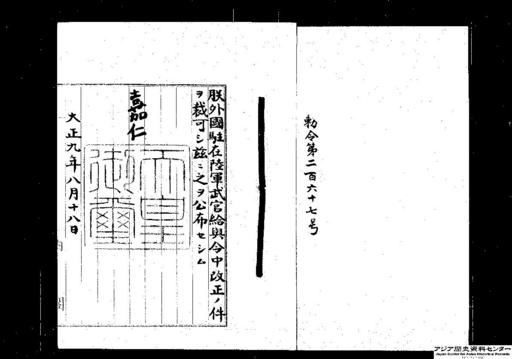 勅令第二百六十七号
朕外國駐在陸軍武官給與令中改正ノ件
ヲ裁可シ茲ニ之ヲ公布セシム
嘉仁
天皇
御璽
大正九年八月十八日
アジア歴史資料センター
Japan Center for Asian Historical Records